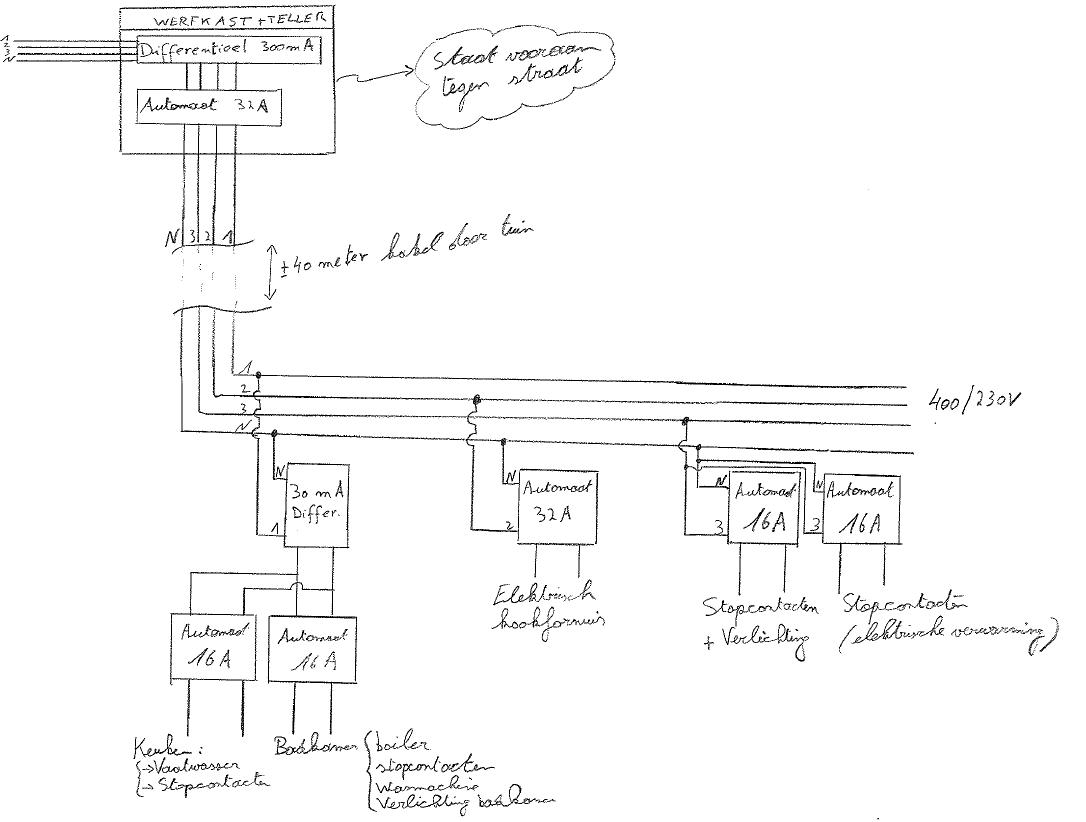 WERFKAST + TELLER
1
2
3
N
Differentieel 300mA
Automaat 32A
Staat vooraan
tegen straat
N 3 2 1
±40 meter kabel door tuin
1
2
3
N
400/230V
N
30 mA
Differ.
1
N
Automaat
32A
2
N
Automaat
16A
3
N
Automaat
16A
3
Elektrisch
kookfornuis
Stopcontacten
+ Verlichting
Stopcontacten
(elektrische verwarming)
Automaat
16A
Automaat
16A
Keuken:
→ Vaatwasser
→ Stopcontacten
Badkamer
boiler
stopcontacten
Wasmachine
Verlichting badkamer